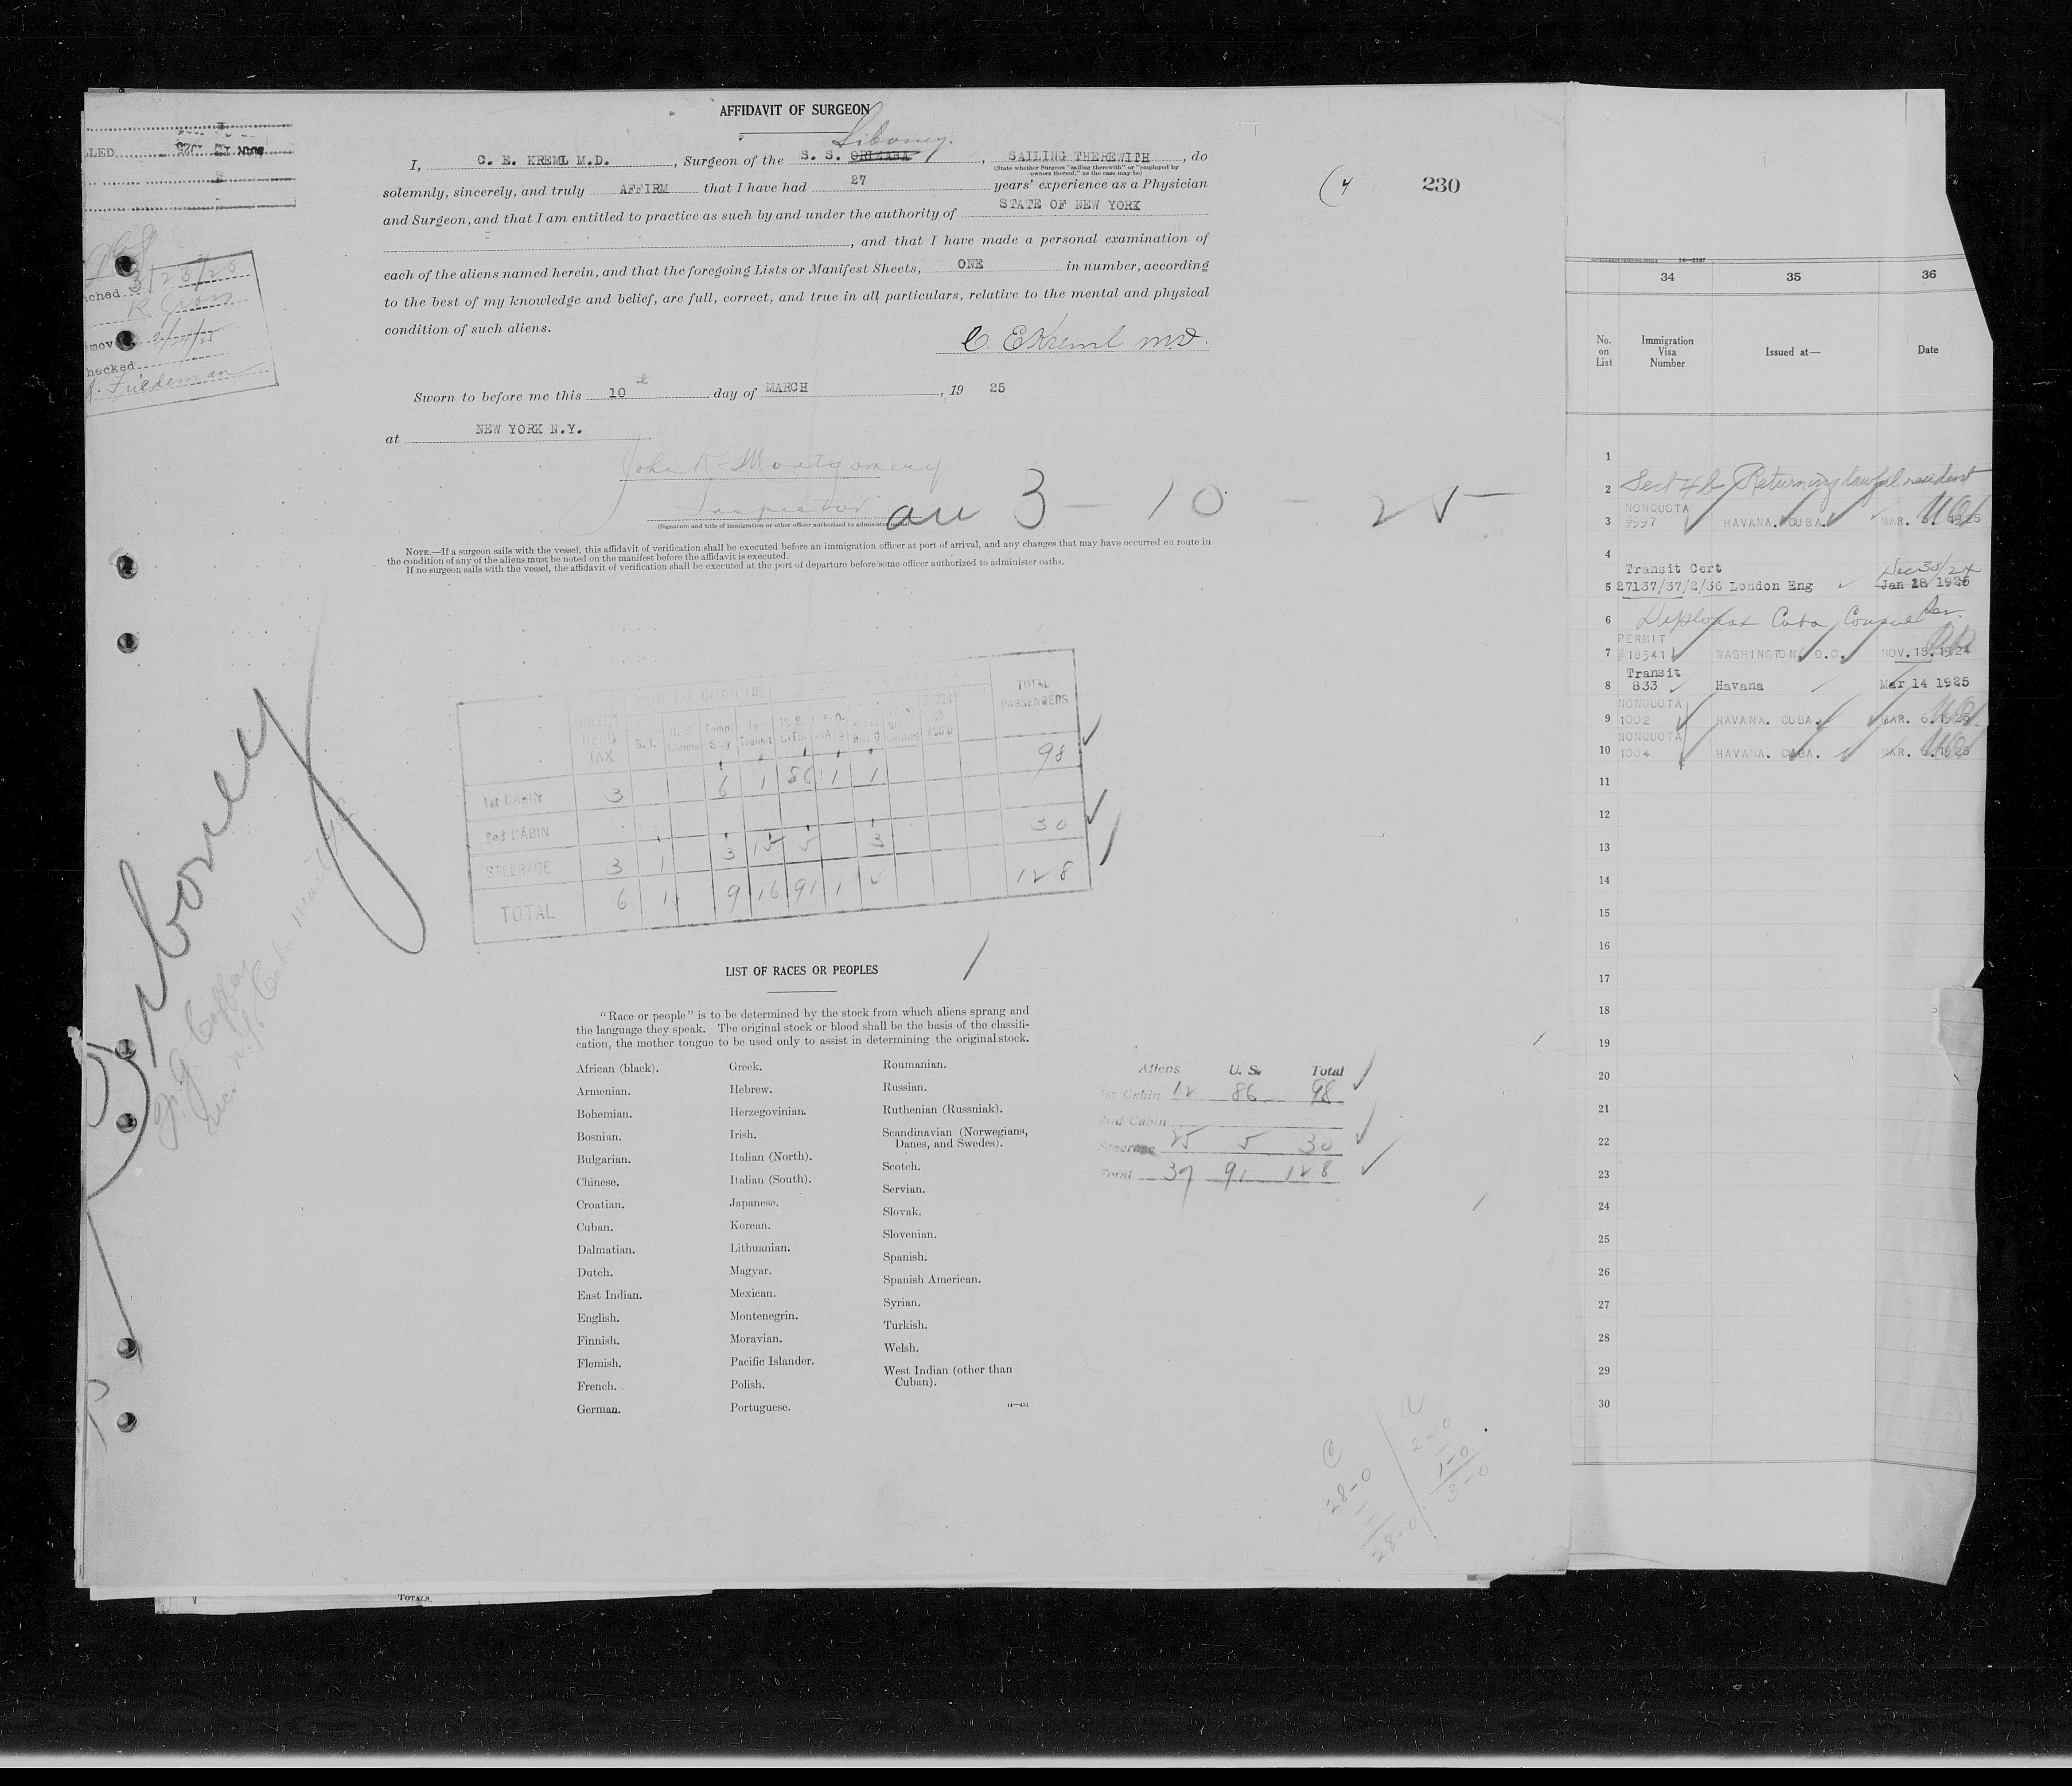 AFFIDAVIT OF SURGEON
Siboney.
I, C. E. KREML M.D. , Surgeon of the S. S. ORIZABA , SAILING THEREWITH , do
(State whether Surgeon "sailing therewith" or "employed by
owners thereof," as the case may be)
solemnly, sincerely, and truly AFFIRM that I have had 27 years' experience as a Physician
and Surgeon, and that I am entitled to practice as such by and under the authority of STATE OF NEW YORK
, and that I have made a personal examination of
each of the aliens named herein, and that the foregoing Lists or Manifest Sheets, ONE in number, according
to the best of my knowledge and belief, are full, correct, and true in all particulars, relative to the mental and physical
condition of such aliens.
C. E Kreml M.D.
Sworn to before me this 10 th day of MARCH , 19 25
at NEW YORK N.Y.
John R Montgomery
Inspector
(Signature and title of immigration or other officer authorized to administer oaths.)
arr 3 - 10 - 25
NOTE.—If a surgeon sails with the vessel, this affidavit of verification shall be executed before an immigration officer at port of arrival, and any changes that may have occurred en route in
the condition of any of the aliens must be noted on the manifest before the affidavit is executed.
If no surgeon sails with the vessel, the affidavit of verification shall be executed at the port of departure before some officer authorized to administer oaths.
230
LLED
3/23/25
ched
mov
hecked
Friedeman
Siboney
DIRECT HEAD TAX
S. I.
U. S.
Temp. Stay
In Transit
TOTAL PASSENGERS
1st CABIN 3 6 1 86 1 1 98
2nd CABIN
STEERAGE 3 1 3 15 5 3 30
TOTAL 6 1 9 16 91 1 4 128
LIST OF RACES OR PEOPLES
"Race or people" is to be determined by the stock from which aliens sprang and
the language they speak. The original stock or blood shall be the basis of the classifi-
cation, the mother tongue to be used only to assist in determining the original stock.
African (black).
Armenian.
Bohemian.
Bosnian.
Bulgarian.
Chinese.
Croatian.
Cuban.
Dalmatian.
Dutch.
East Indian.
English.
Finnish.
Flemish.
French.
German.
Greek.
Hebrew.
Herzegovinian.
Irish.
Italian (North).
Italian (South).
Japanese.
Korean.
Lithuanian.
Magyar.
Mexican.
Montenegrin.
Moravian.
Pacific Islander.
Polish.
Portuguese.
Roumanian.
Russian.
Ruthenian (Russniak).
Scandinavian (Norwegians,
Danes, and Swedes).
Scotch.
Servian.
Slovak.
Slovenian.
Spanish.
Spanish American.
Syrian.
Turkish.
Welsh.
West Indian (other than
Cuban).
14—431
Aliens U. S. Total
1st Cabin 12 86 98
2nd Cabin
Steerage 25 5 30
Total 37 91 128
C
28-0
28-0
2-0
1-0
3-0
TOTALS.
34 35 36
No. on List
Immigration Visa Number
Issued at—
Date
1
2 Sect 4b Returning lawful resident
3 NONQUOTA #997 HAVANA. CUBA. MAR. 6. 1925
4
Transit Cert Dec 30/24
5 27137/37/2/36 London Eng Jan 28 1925
6 Diplomat Cuba Consul
PERMIT
7 #18541 WASHINGTON, D.C. NOV. 15. 1924
Transit
8 833 Havana Mar 14 1925
NONQUOTA
9 1002 HAVANA. CUBA. MAR. 6. 1925
NONQUOTA
10 1004 HAVANA. CUBA. MAR. 6. 1925
11
12
13
14
15
16
17
18
19
20
21
22
23
24
25
26
27
28
29
30